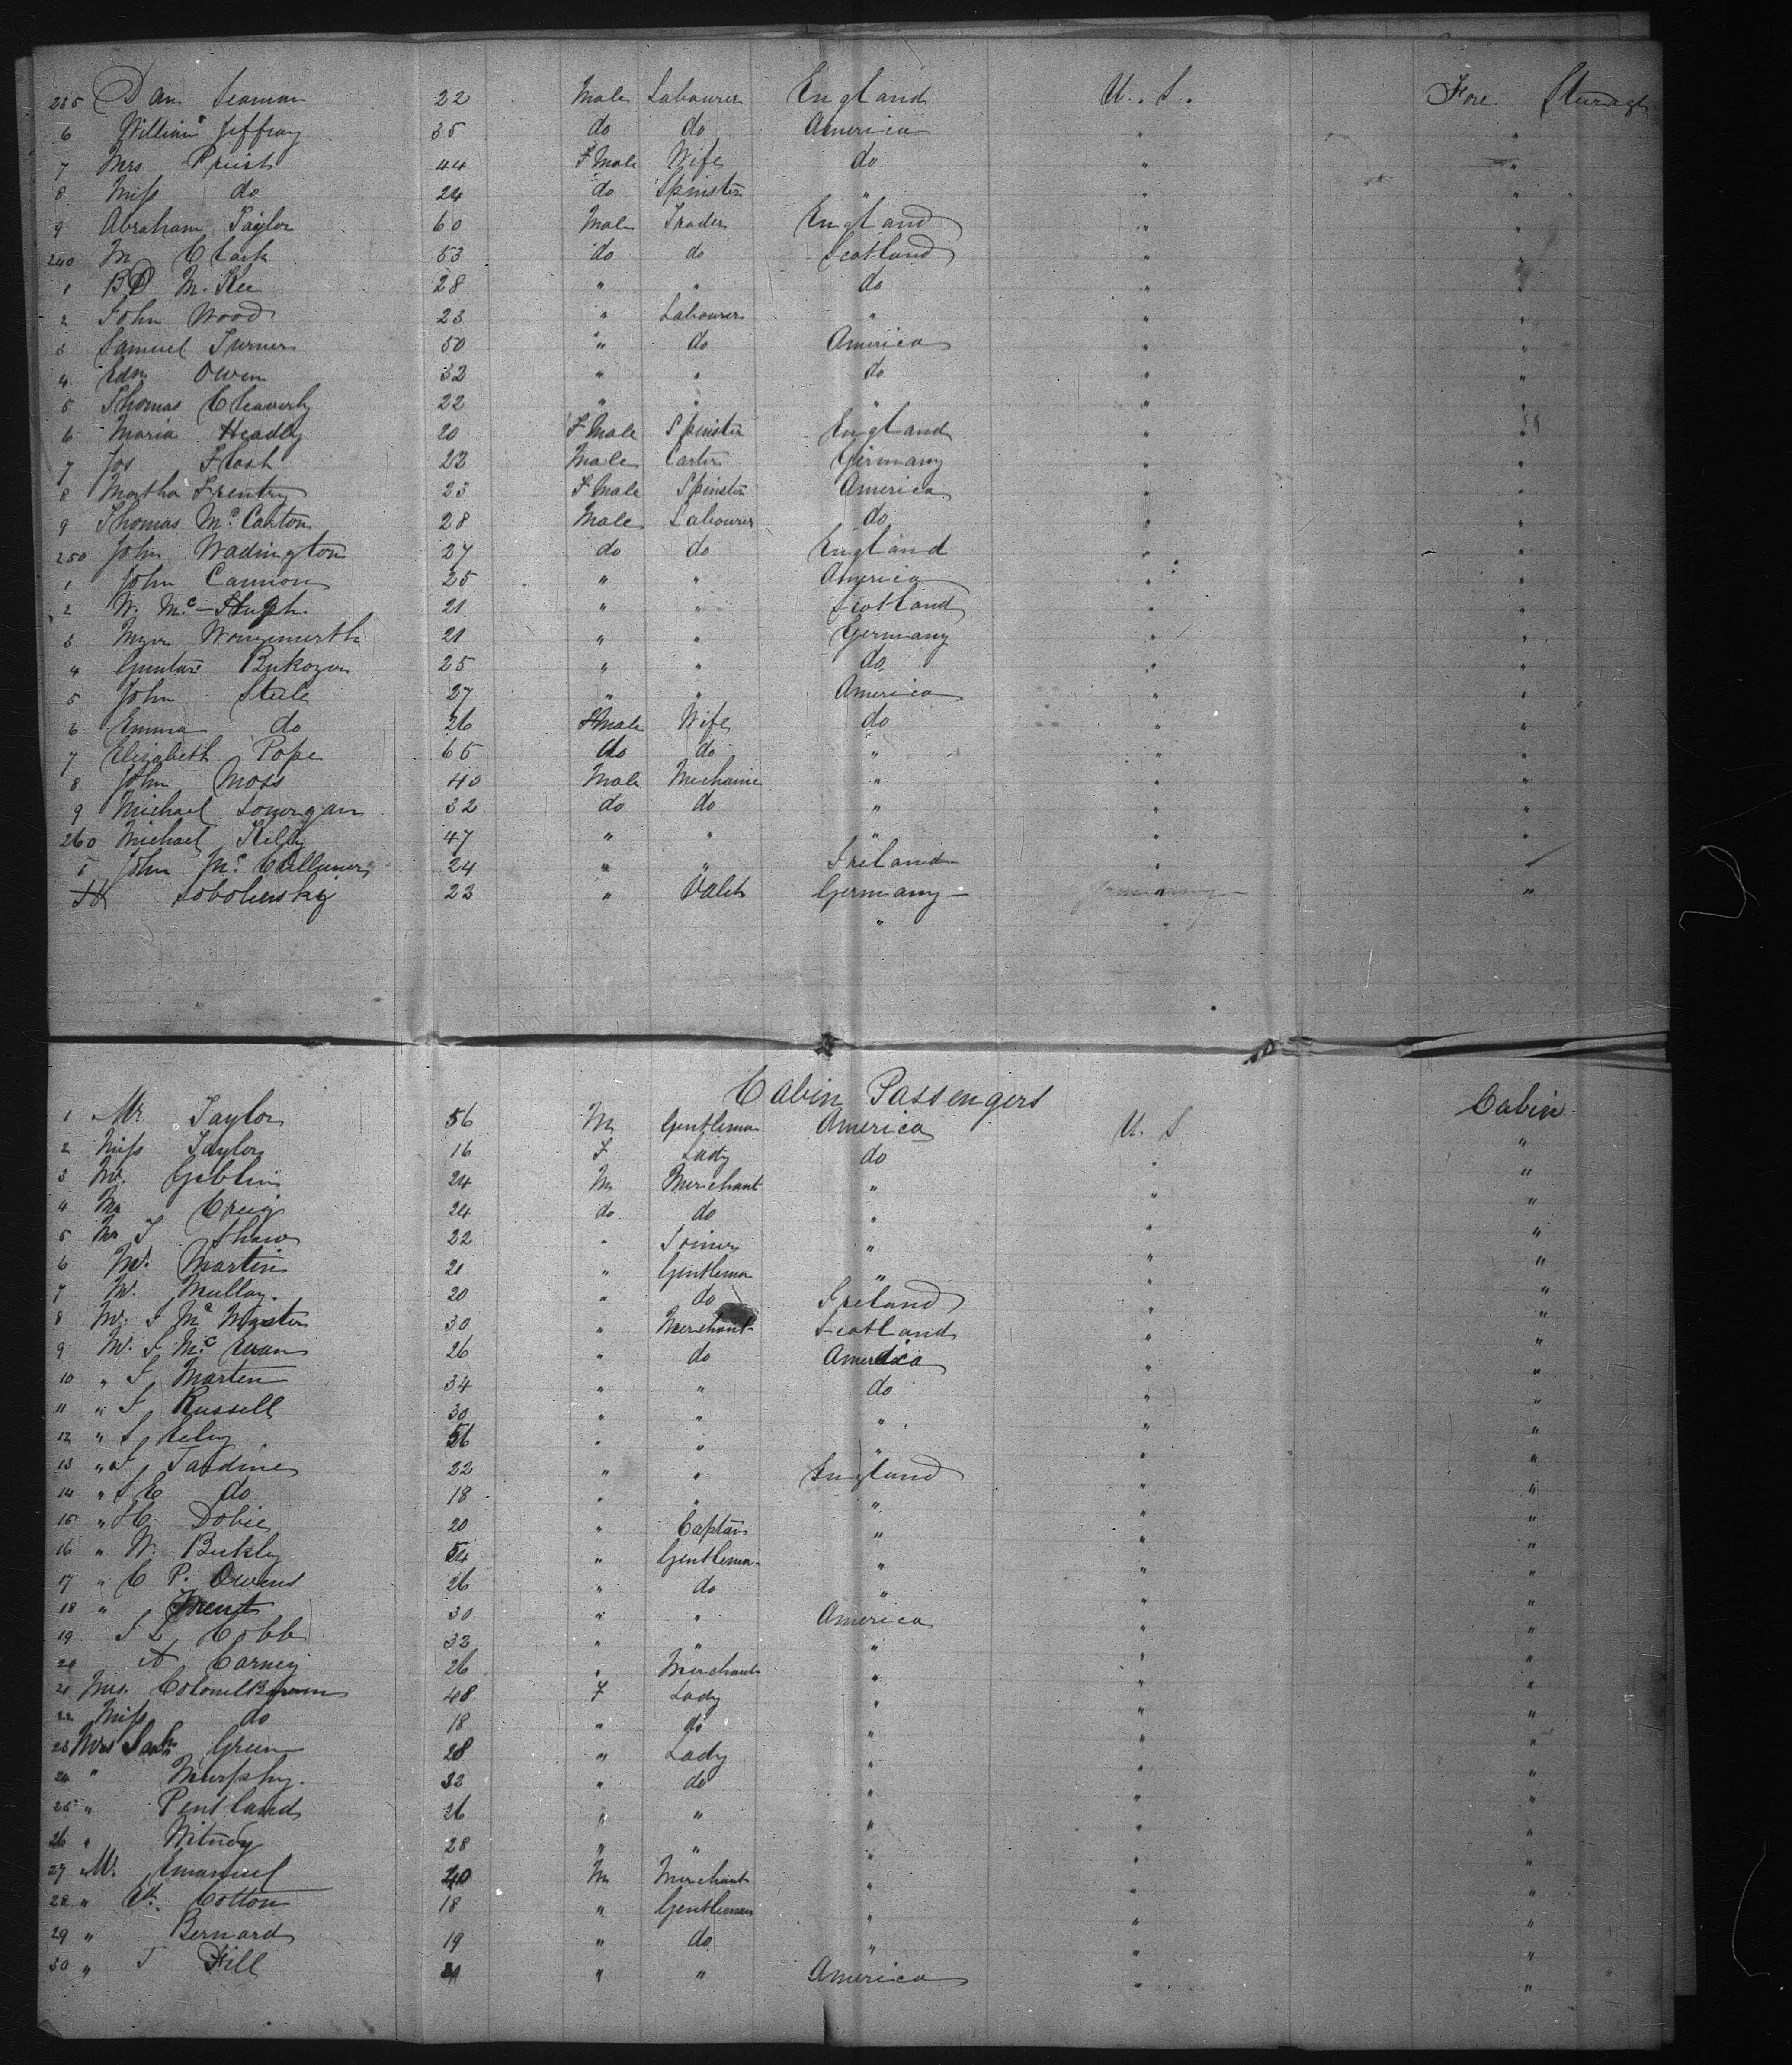 235 Dan Seaman 22 Male Labourer England U. S. Fore Sturage
6 William Jeffray 35 do do America " "
7 Mrs Priest 44 F Male Wife do " "
8 Miss do 24 do Spinster " " "
9 Abraham Taylor 60 Male Trader England " "
240 M Clark 53 do do Scotland " "
1 BD Mc Kee 28 " " do " "
2 John Wood 23 " Labourer " " "
3 Samuel Turner 50 " do America " "
4 Edn Owen 32 " " do " "
5 Thomas Cleaverly 22 " " " " "
6 Maria Headly 20 F Male Spinster England " "
7 Jos 23 Male Carter Germany " "
8 Martha 23 F Male Spinster America " "
9 Thomas Mc Canton 28 Male Labourer do " "
250 John Wadington 27 do do England " "
1 John Cannon 25 " " America " "
2 W. Mc 21 " " Scotland " "
3 21 " " Germany " "
4 25 " " do " "
5 John Steele 27 " " America " "
6 Emma do 26 F Male Wife do " "
7 Elizabeth Pope 65 do do " " "
8 John Moss 40 Male Mechanic " " "
9 Michael Lonergan 32 do do " " "
260 Michael Kelly 47 " " " " "
John Mc 24 " " Ireland "
Sobolensky 23 " Valet Germany " "
" "
Cabin Passengers
1 Mr Taylor 56 M Gentleman America U. S Cabin
2 Miss Taylor 16 F Lady do " "
3 Mr. Giblin 24 M Merchant " " "
4 Mr Creig 24 do do " " "
5 Mr J Shaw 22 " Joiner " " "
6 Mr. Martin 21 " Gentleman " " "
7 Mr. Mulloy. 20 " do Ireland " "
8 Mr. J Mc Master 30 " Merchant Scotland " "
9 Mr. J. Mc Ewan 26 " do America " "
10 " J. Marten 34 " " do " "
11 " J Russell 30 " " " " "
12 " S. Eeley 56 " " " " "
13 " J. Jardine 22 " " England " "
14 " S E do 18 " " " " "
15 " H. Dobie 20 " Captain " " "
16 " W. Buckley 54 " Gentleman " " "
17 " C P. Owens 26 " do " " "
18 " Trent 30 " " America " "
19 J L Cobb 32 " " " " "
20 A Carney 26 " Merchant " " "
21 Mrs. Colonel 48 F Lady " " "
22 Miss do 18 " do " " "
23 Mrs Green 28 " Lady " " "
24 " Murphy. 32 " do " " "
25 " Pentland 26 " " " " "
26 " Witney 28 " " " " "
27 Mr. Emanuel 40 M Merchant " " "
28 " Ed. Cotton 18 " Gentleman " " "
29 " Bernard 19 " do " " "
30 " J Hill " " America " "